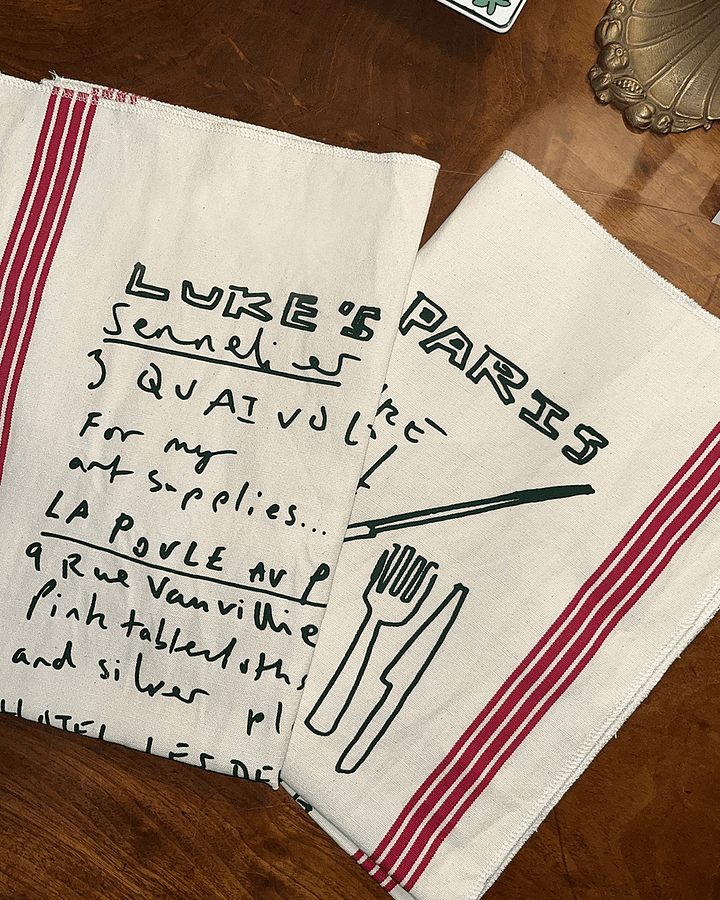 LUKE'S PARIS
Sennelier
3 QUAI VOL
RE
For my
art supplies...
LA POULE AU P
9 Rue Vauvillie
pink tablecloths
and silver pl
HOTEL LES DE